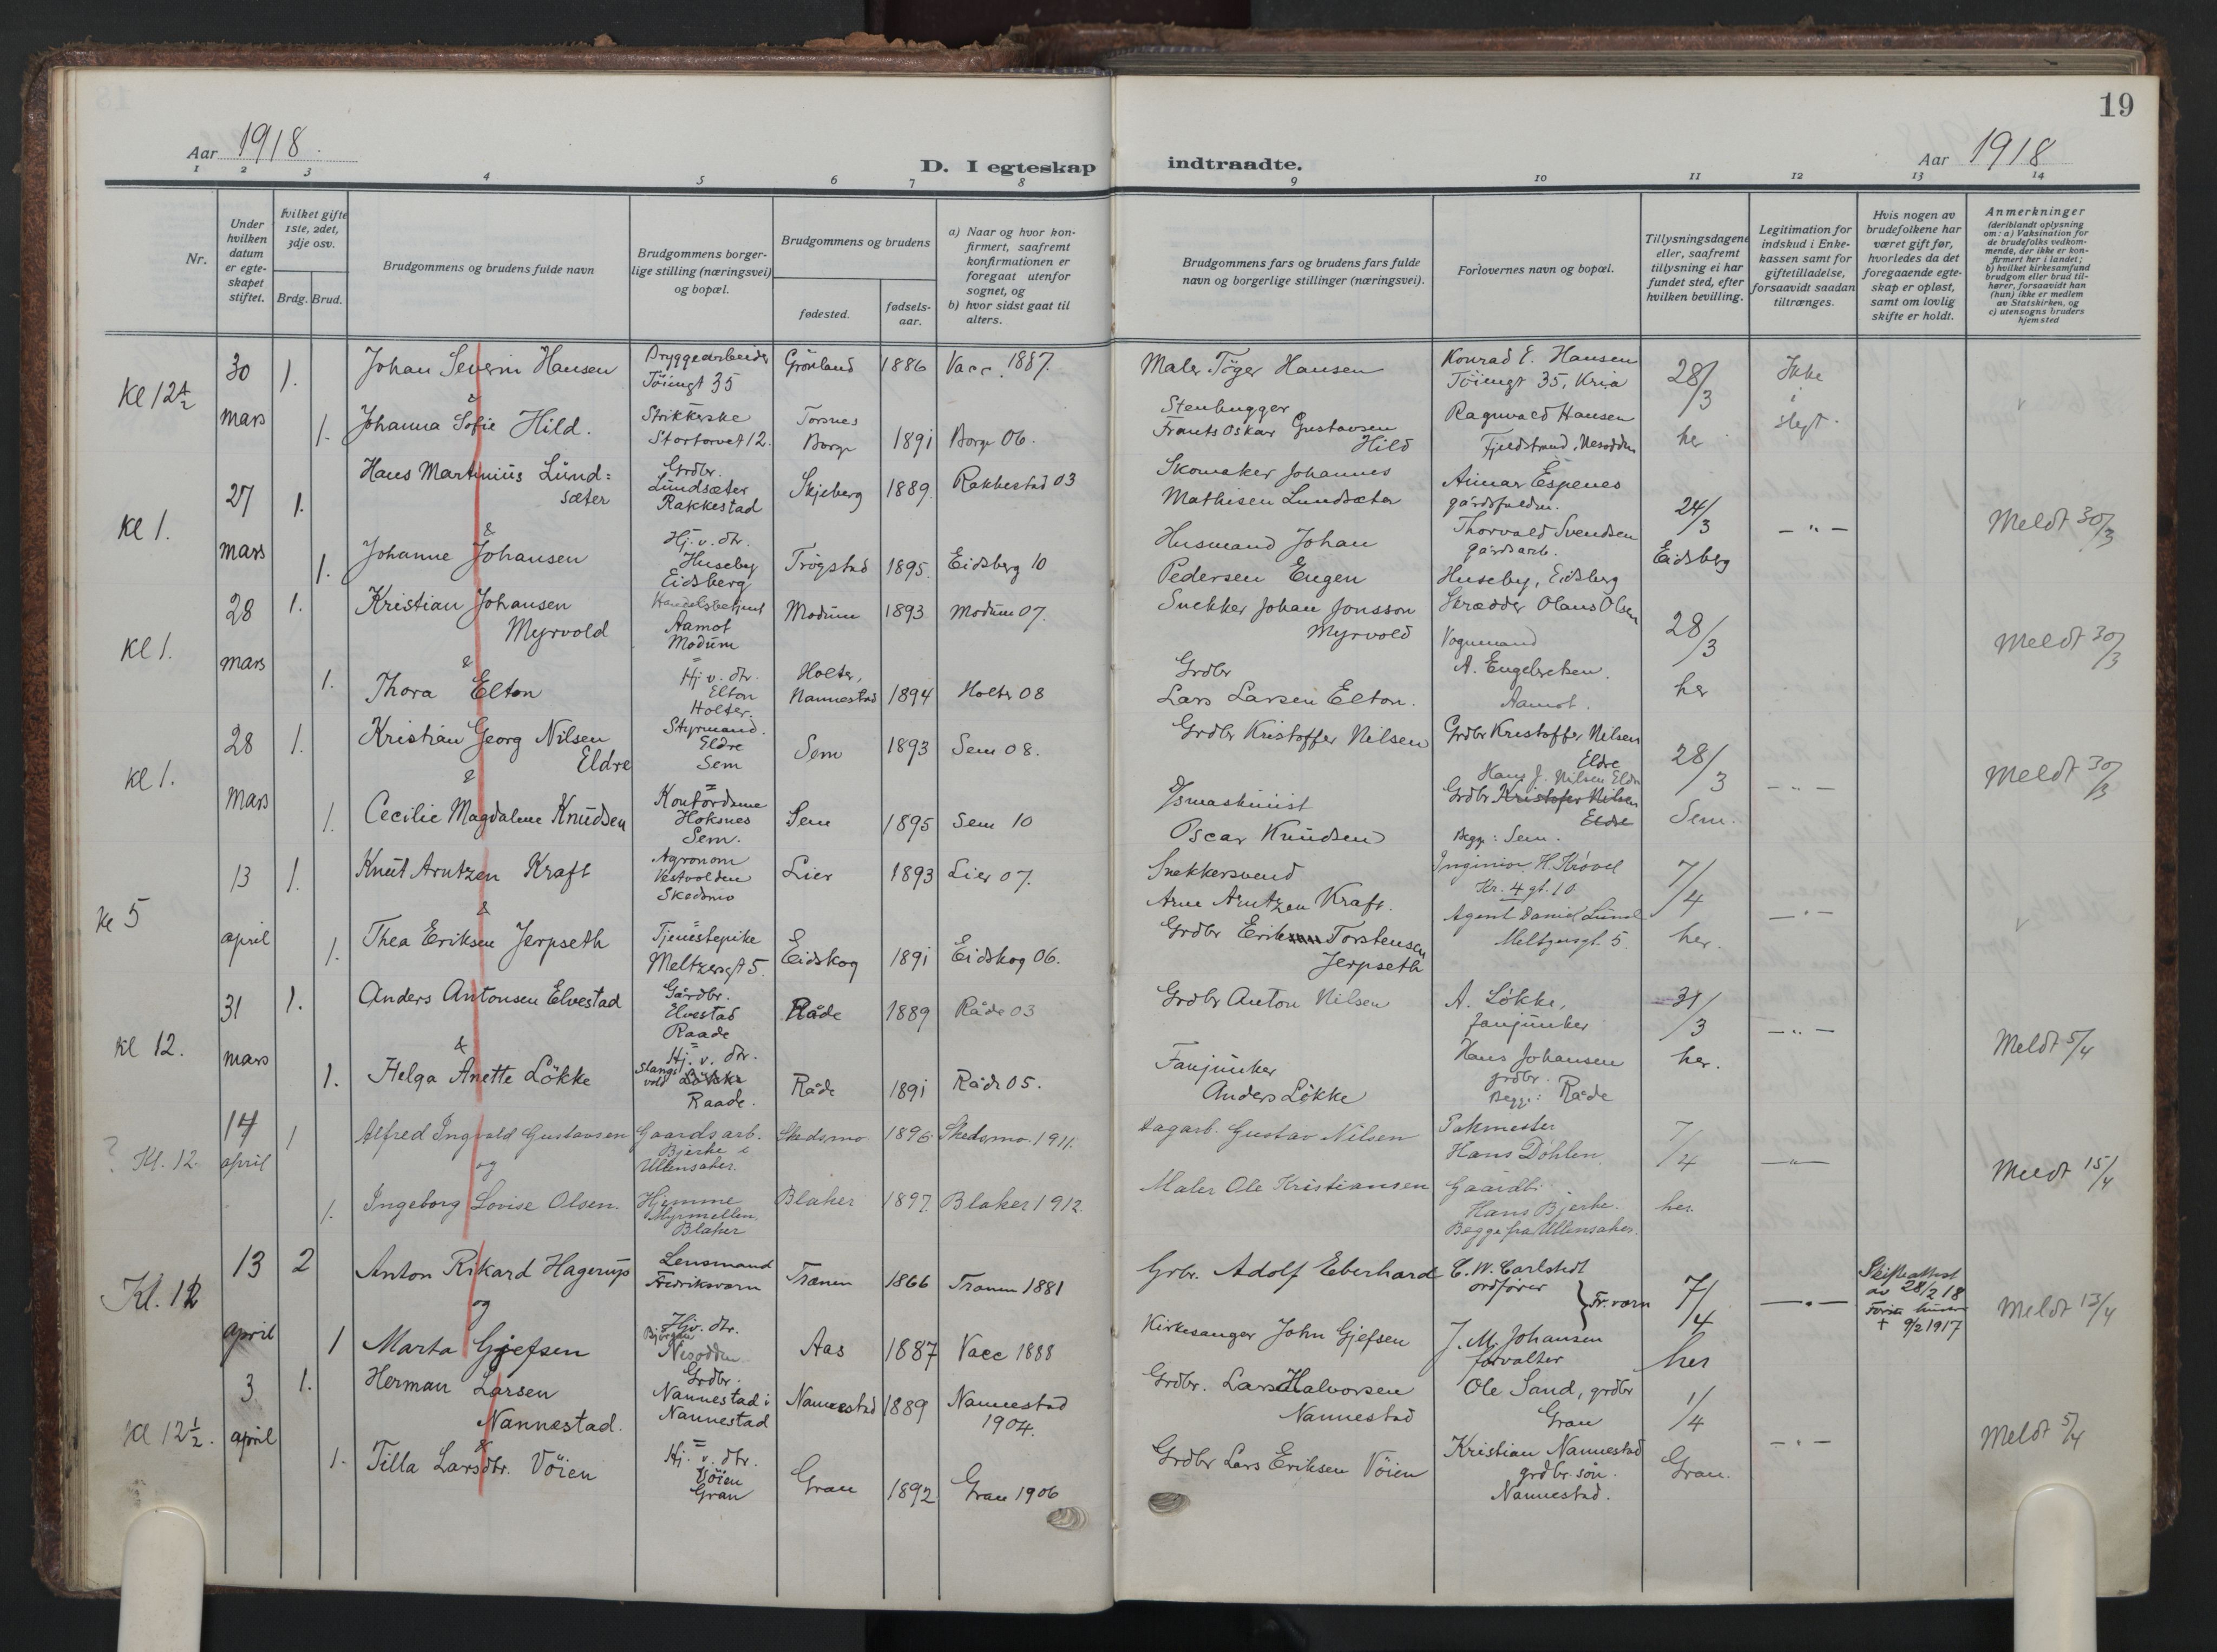 19
Aar 1918.
D. I egteskap indtraadte.
Aar 1918
1 2 3 4 5 6 7 8 9 10 11 12 13 14
Nr.
Under hvilken datum er egteskapet stiftet.
Hvilket gifte 1ste, 2det, 3dje osv.
Brdg. Brud.
Brudgommens og brudens fulde navn
Brudgommens borgerlige stilling (næringsvei) og bopæl.
Brudgommens og brudens
fødested.
fødselsaar.
a) Naar og hvor konfirmert, saafremt konfirmationen er foregaat utenfor sognet, og
b) hvor sidst gaat til alters.
Brudgommens fars og brudens fars fulde navn og borgerlige stillinger (næringsvei).
Forlovernes navn og bopæl.
Tillysningsdagene eller, saafremt tillysning ei har fundet sted, efter hvilken bevilling.
Legitimation for indskud i Enkekassen samt for giftetilladelse, forsaavidt saadan tiltrænges.
Hvis nogen av brudefolkene har været gift før, hvorledes da det foregaaende egteskap er opløst, samt om lovlig skifte er holdt.
Anmerkninger
(deriblandt oplysning om: a) Vaksination for de brudefolks vedkommende, der ikke er konfirmert her i landet;
b) hvilket kirkesamfund brudgom eller brud tilhører, forsaavidt han (hun) ikke er medlem av Statskirken, og
c) utensogns bruders hjemsted
Kl 12 1/2
30 mars
1. Johan Severin Hansen
Bryggearbeider Töiengt 35
Grönland 1886 Vacc. 1887.
Maler Töger Hansen
Konrad E. Hansen
Töiengt 35, Kria
28/3 her
Ikke i slegt.
&
1. Johanna Sofie Hild.
Strikkerske
Stortorvet 12.
Torsnes Borge 1891 Borge 06.
Stenhugger
Frants Oskar Gustavsen Hild
Ragnvald Hansen
Fjeldstrand, Nesodden
Kl 1.
27 mars
1. Hans Martinius Lundsæter
Grdbr. Lundsæter Rakkestad
Skjeberg 1889. Rakkestad 03
Skomaker Johannes
Mathisen Lundsæter
Aimar Espenes
24/3 Eidsberg
Meldt 30/3
&
1. Johanne Johansen
Hj. v. dtr. Huseby Eidsberg
Trögstad 1895. Eidsberg 10
Husmand Johan
Pedersen Eugen
Thorvald Svendsen
gårdsarb.
Huseby, Eidsberg
Kl 1.
28 mars
1. Kristian Johansen Myrvold
Aamot Modum
Modum 1893 Modum 07.
Snekker Johan Jonsson Myrvold
Skrædder Olaus Olsen
28/3 her
Meldt 30/3
&
1. Thora Elton
Hj. v. dtr. Elton Holter.
Holter, Nannestad 1894 Holter 08
Grdbr Lars Larsen Elton.
Vognmand
A. Engebretsen.
Aamot.
Kl 1.
28 Mars
1. Kristian Georg Nilsen Eldre
Styrmand. Eldre Sem
Sem 1893 Sem 08.
Grdbr Kristoffer Nilsen
Grdbr Kristoffer Nilsen Eldre
28/3 Sem.
Meldt 30/3
&
1. Cecilie Magdalene Knudsen
Kontordame Hoksnes Sem.
Sem 1895 Sem 10
D/smaskinist
Oscar Knudsen
Hans J. Nilsen Eldre
Grdbr Kristofer Nilsen Eldre
Begge: Sem.
Kl 5
13 april
1. Knut Arntzen Kraft
Agronom Vestvolden Skedsmo
Lier 1893 Lier 07.
Snekkersvend
Arne Arntzen Kraft.
Inginiør H. Krövel
Kr. 4 gt. 10.
7/4 her.
&
1. Thea Eriksen Jerpseth
Tjenestepike
Meltzersgt 5.
Eidskog 1891 Eidskog 06.
Grdbr Erik Torstensen Jerpseth
Agent Daniel Lund
Meltzersgt. 5.
Kl 12.
31 mars
1. Anders Antonsen Elvestad
Gårdbr. Elvestad Raade
Råde 1889 Råde 03
Grdbr Anton Nilsen
A. Lökke, fanjunker
31/3 her.
Meldt 5/4
&
1. Helga Anette Lökke
Hj. v. dtr.
Slangsvold Lökke Raade.
Råde 1891 Råde 05.
Fanjunker
Anders Lökke
Hans Johansen
grdbr.
Begge: Råde
? Kl. 12.
14 april
1 Alfred Ingvald Gustavsen
Gaardsarb. Bjerke i Ullensaker.
Skedsmo 1896. Skedsmo. 1911.
Dagarb. Gustav Nilsen
Pakmester
Hans Döhlen.
7/4 her.
Meldt 15/4
og
1. Ingeborg Lovise Olsen.
Hjemme
Blaker
Blaker 1897. Blaker 1912.
Maler Ole Kristiansen
Gaardbr.
Hans Bjerke.
Begge fra Ullensaker.
Kl. 12
13 april
2 Anton Rikard Hagerup
Lensmand Fredriksværn
Tranen 1866 Tranen 1881
Grbr. Adolf Eberhard
C. W. Carlstedt
ordfører
Fr. værn
7/4 her
Skifteattest av 28/2 18
+ 9/2 1917
Meldt 13/4
og
1 Marta Gjefsen
Hjv. dtr. Nesodden
Aas 1887 Vacc 1888
Kirkesanger John Gjefsen
J. M. Johansen
forvalter
Kl 12 1/2.
3 april
1. Herman Larsen Nannestad.
Grdbr. Nannestad i Nannestad
Nannestad 1889 Nannestad 1904.
Grdbr. Lars Halvorsen Nannestad
Ole Sand, grdbr
Gran
1/4 Gran.
Meldt 5/4
&
1. Tilla Larsdtr. Vöien
Hj. v. dtr. Vöien Gran
Gran 1892 Gran 1906
Grdbr Lars Eriksen Vöien
Kristian Nannestad
grdbr. sön.
Nannestad.